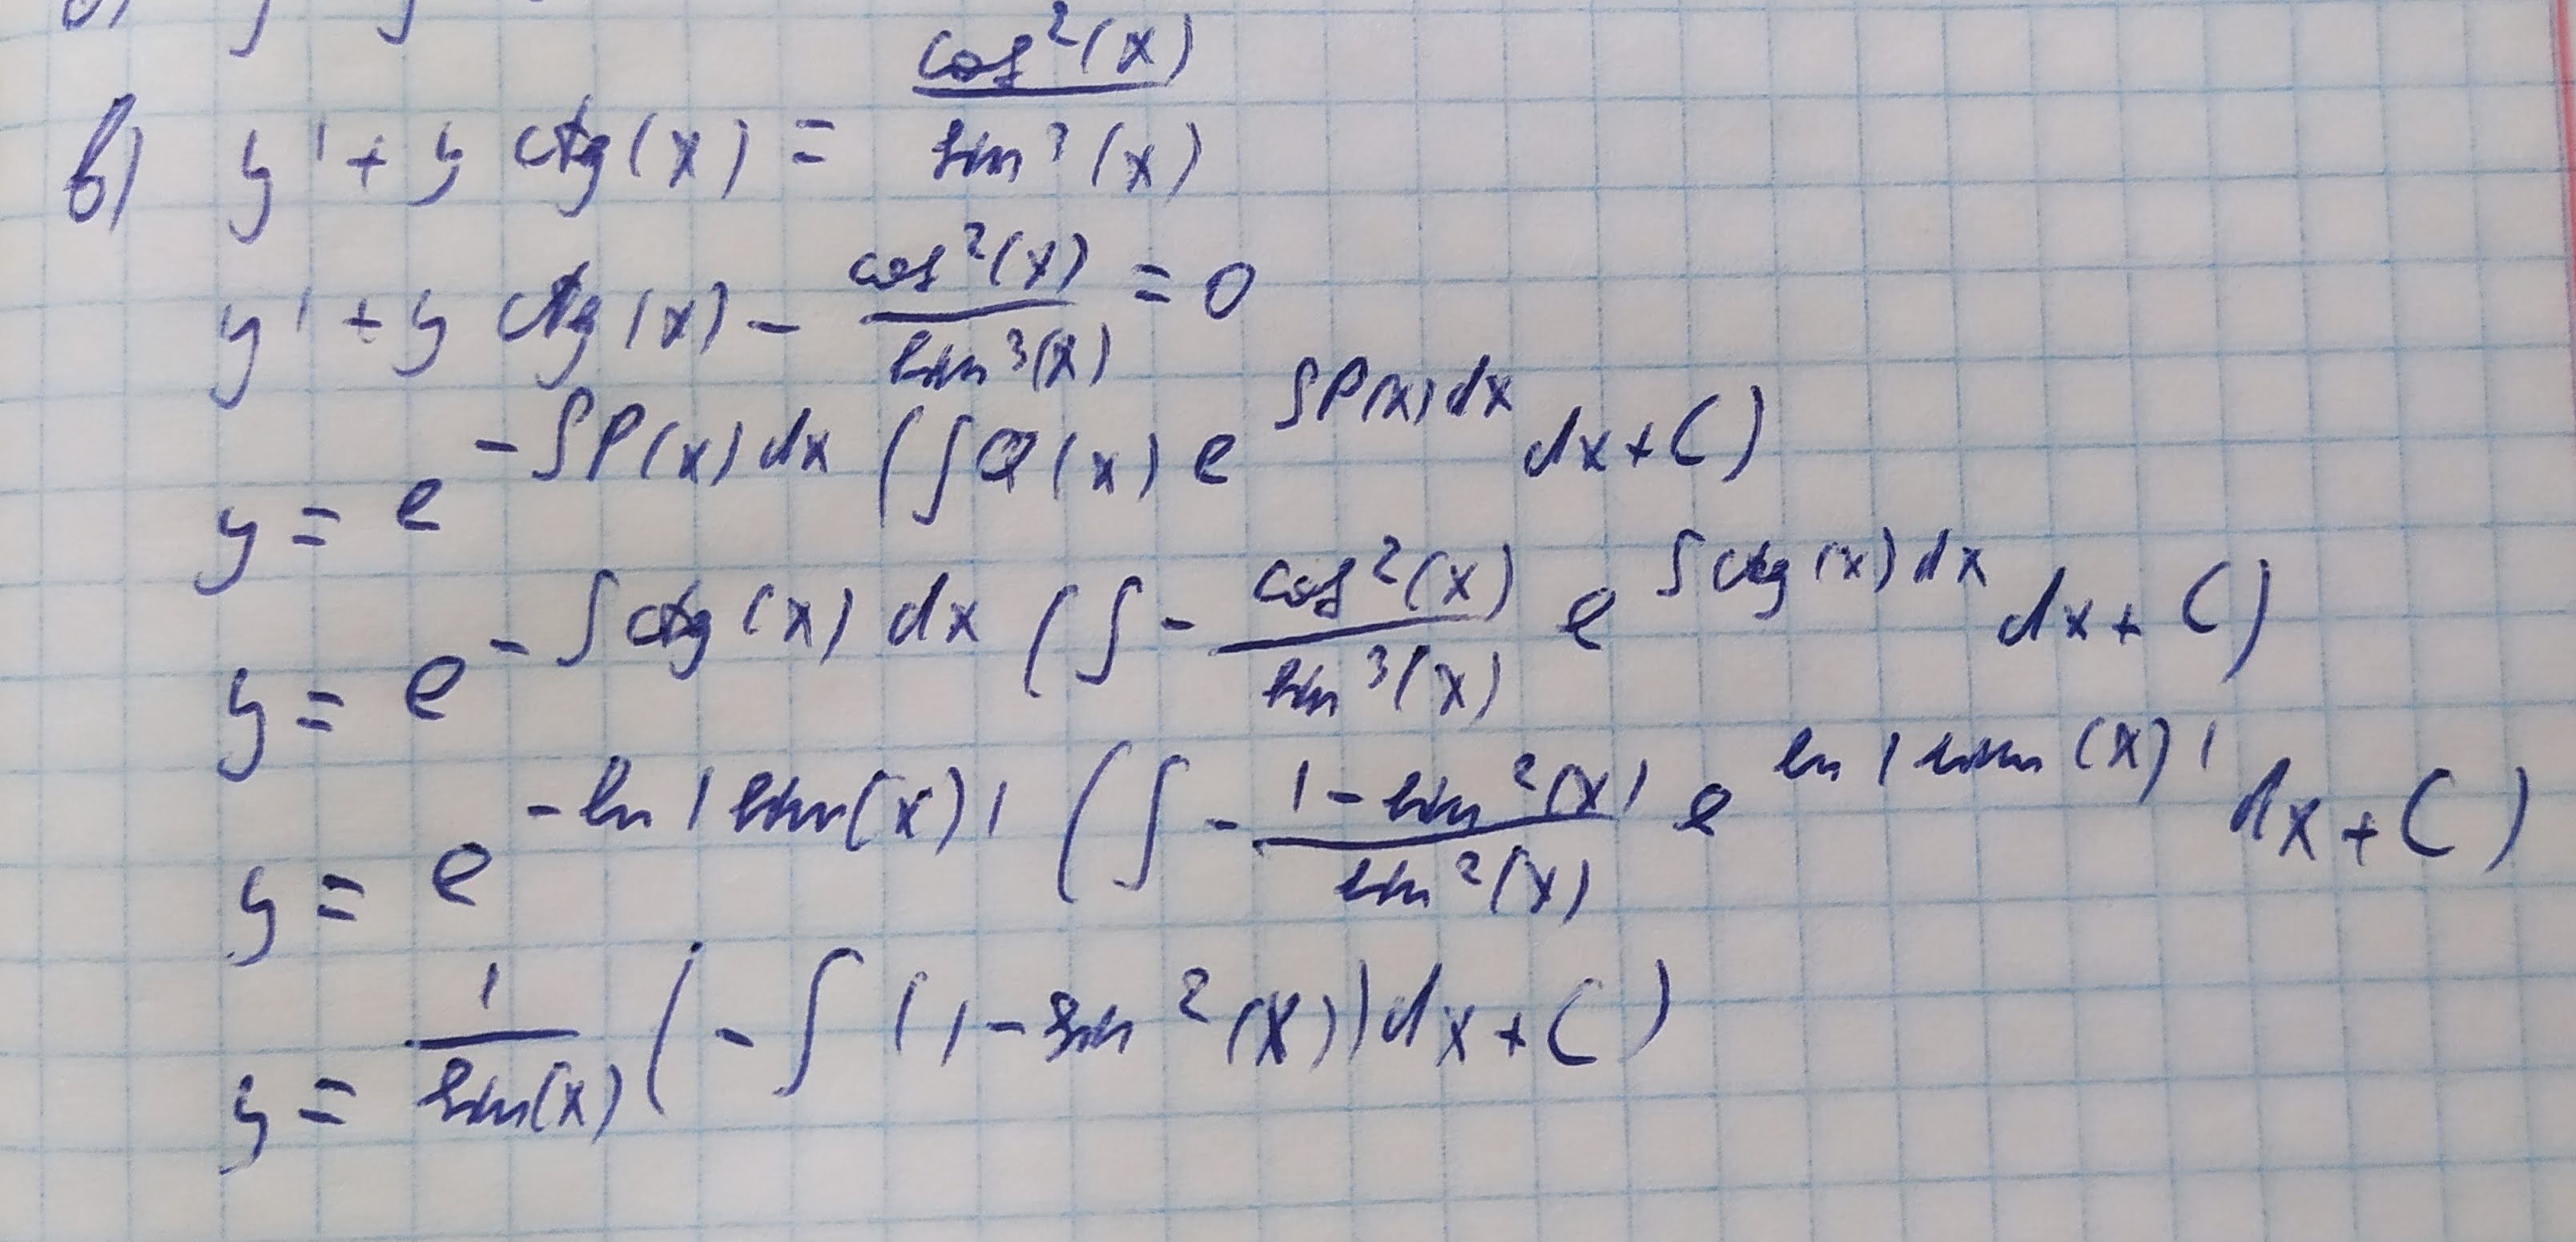 в) y' + y ctg(x) = cos²(x) / sin³(x)
y' + y ctg(x) - cos²(x) / sin³(x) = 0
y = e^(-∫P(x)dx) (∫Q(x) e^(∫P(x)dx) dx + C)
y = e^(-∫ctg(x)dx) (∫ - cos²(x) / sin³(x) e^(∫ctg(x)dx) dx + C)
y = e^(-ln|sin(x)|) (∫ - 1-sin²(x) / sin²(x) e^(ln|sin(x)|) dx + C)
y = 1 / sin(x) (-∫(1-sin²(x))dx + C)